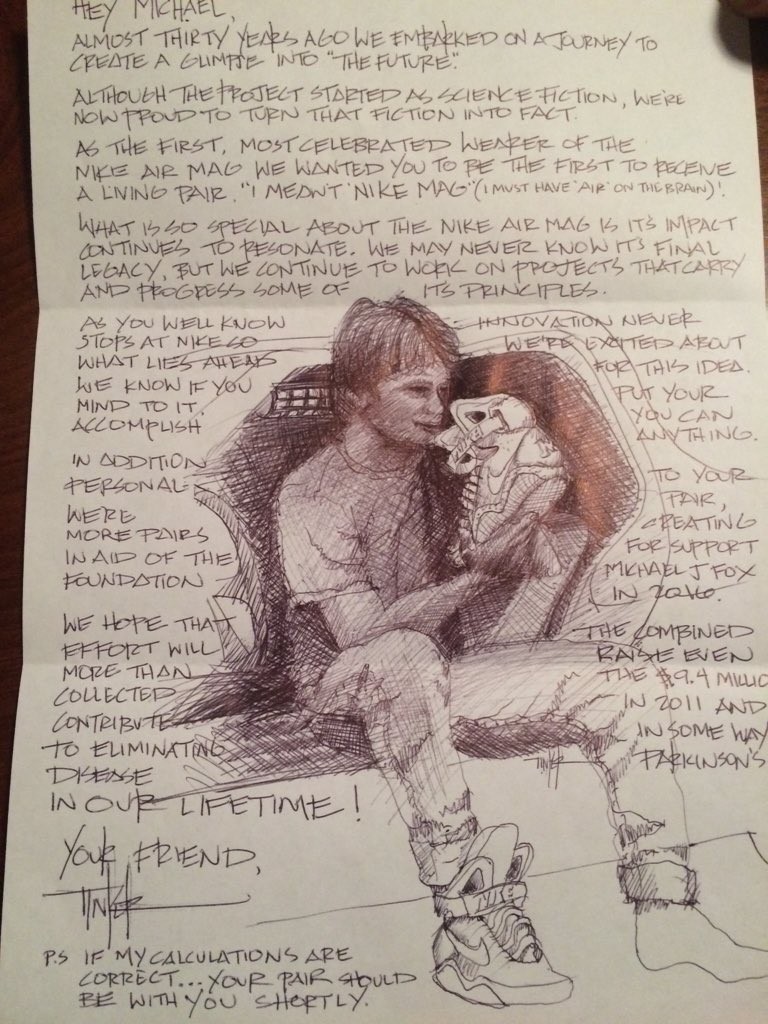 HEY MICHAEL,
ALMOST THIRTY YEARS AGO WE EMBARKED ON A JOURNEY TO
CREATE A GLIMPSE INTO "THE FUTURE".
ALTHOUGH THE PROJECT STARTED AS SCIENCE FICTION, WE'RE
NOW PROUD TO TURN THAT FICTION INTO FACT.
AS THE FIRST, MOST CELEBRATED WEARER OF THE
NIKE AIR MAG WE WANTED YOU TO BE THE FIRST TO RECEIVE
A LIVING PAIR. "I MEANT 'NIKE MAG" (I MUST HAVE 'AIR' ON THE BRAIN)!
WHAT IS SO SPECIAL ABOUT THE NIKE AIR MAG IS IT'S IMPACT
CONTINUES TO RESONATE. WE MAY NEVER KNOW IT'S FINAL
LEGACY, BUT WE CONTINUE TO WORK ON PROJECTS THAT CARRY
AND PROGRESS SOME OF ITS PRINCIPLES.
AS YOU WELL KNOW INNOVATION NEVER
STOPS AT NIKE SO WE'RE EXCITED ABOUT
WHAT LIES AHEAD FOR THIS IDEA.
WE KNOW IF YOU PUT YOUR
MIND TO IT. YOU CAN
ACCOMPLISH ANYTHING.
IN ADDITION TO YOUR
PERSONAL PAIR,
WE'RE CREATING
MORE PAIRS FOR SUPPORT
IN AID OF THE MICHAEL J FOX
FOUNDATION IN 2016.
WE HOPE THAT THE COMBINED
EFFORT WILL RAISE EVEN
MORE THAN THE $9.4 MILLIO
COLLECTED IN 2011 AND
CONTRIBUTE IN SOME WAY
TO ELIMINATING PARKINSON'S
DISEASE
TINKER
IN OUR LIFETIME!
YOUR FRIEND,
TINKER
NIKE
P.S IF MY CALCULATIONS ARE
CORRECT... YOUR PAIR SHOULD
BE WITH YOU SHORTLY.